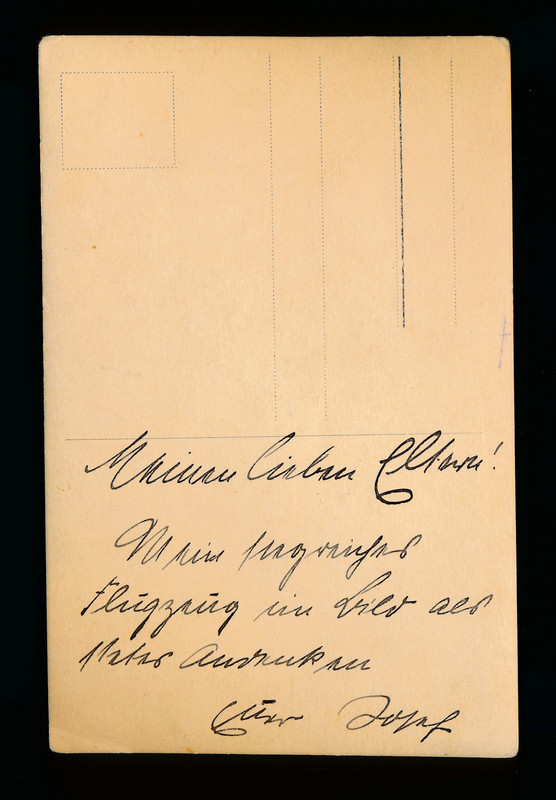 Meinen lieben Eltern!
Mein siegreiches
Flugzeug im Bild als
stetes Andenken
Euer Josef